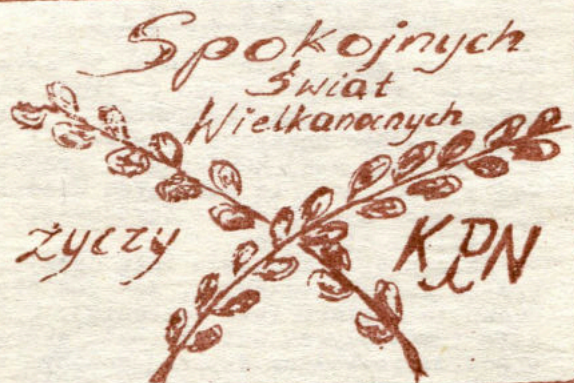 Spokojnych
Świąt
Wielkanocnych
życzy
KPN